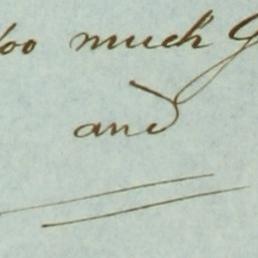 too much
and